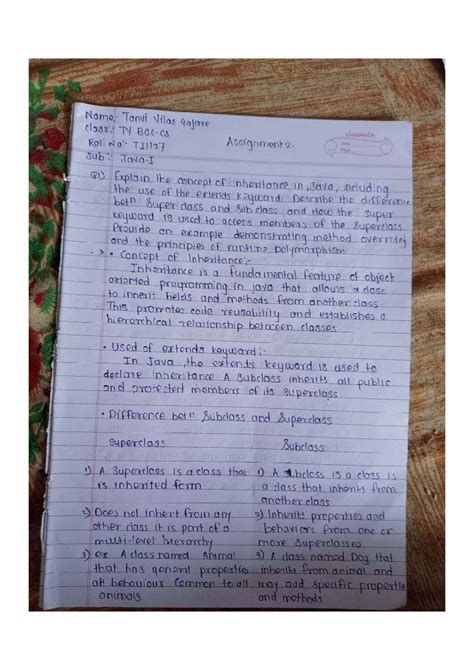 Name:- Tanvi Vilas Gajare
class:- TY BCS-CS
Roll No:- TJ1127
Assignment 2.
classmate
Sub: Java-I
Q1) Explain the concept of inheritance in Java, including
the use of the extends keyword. Describe the difference
betn Super class and Sub class and How the super
keyword is used to access members of the Superclass
Provide an example demonstrating method overriding
and the principles of runtime polymorphism.
→ • Concept of Inheritance:-
Inheritance is a fundamental feature of object
oriented programming in java that allows a class
to inherit fields and methods from another class
This promotes code reusability and establishes a
hierarchical relationship between classes
• Used of extends keyword:-
In Java, the extends keyword is used to
declare inheritance A Subclass inherits all public
and protected members of its superclass
• Difference betn Subclass and Superclass
superclass Subclass
1) A Superclass is a class that 1) A Subclass is a class is
is inherited form a class that inherits from
another class
2) Does not inherit from any 2) Inherits properties and
other class it is part of a behaviors from one or
multi-level hierarchy more Superclasses
3) ex A class named Animal 3) A class named Dog that
that has general properties inherits from animal and
behaviour common to all may add specific properties
animals and methods